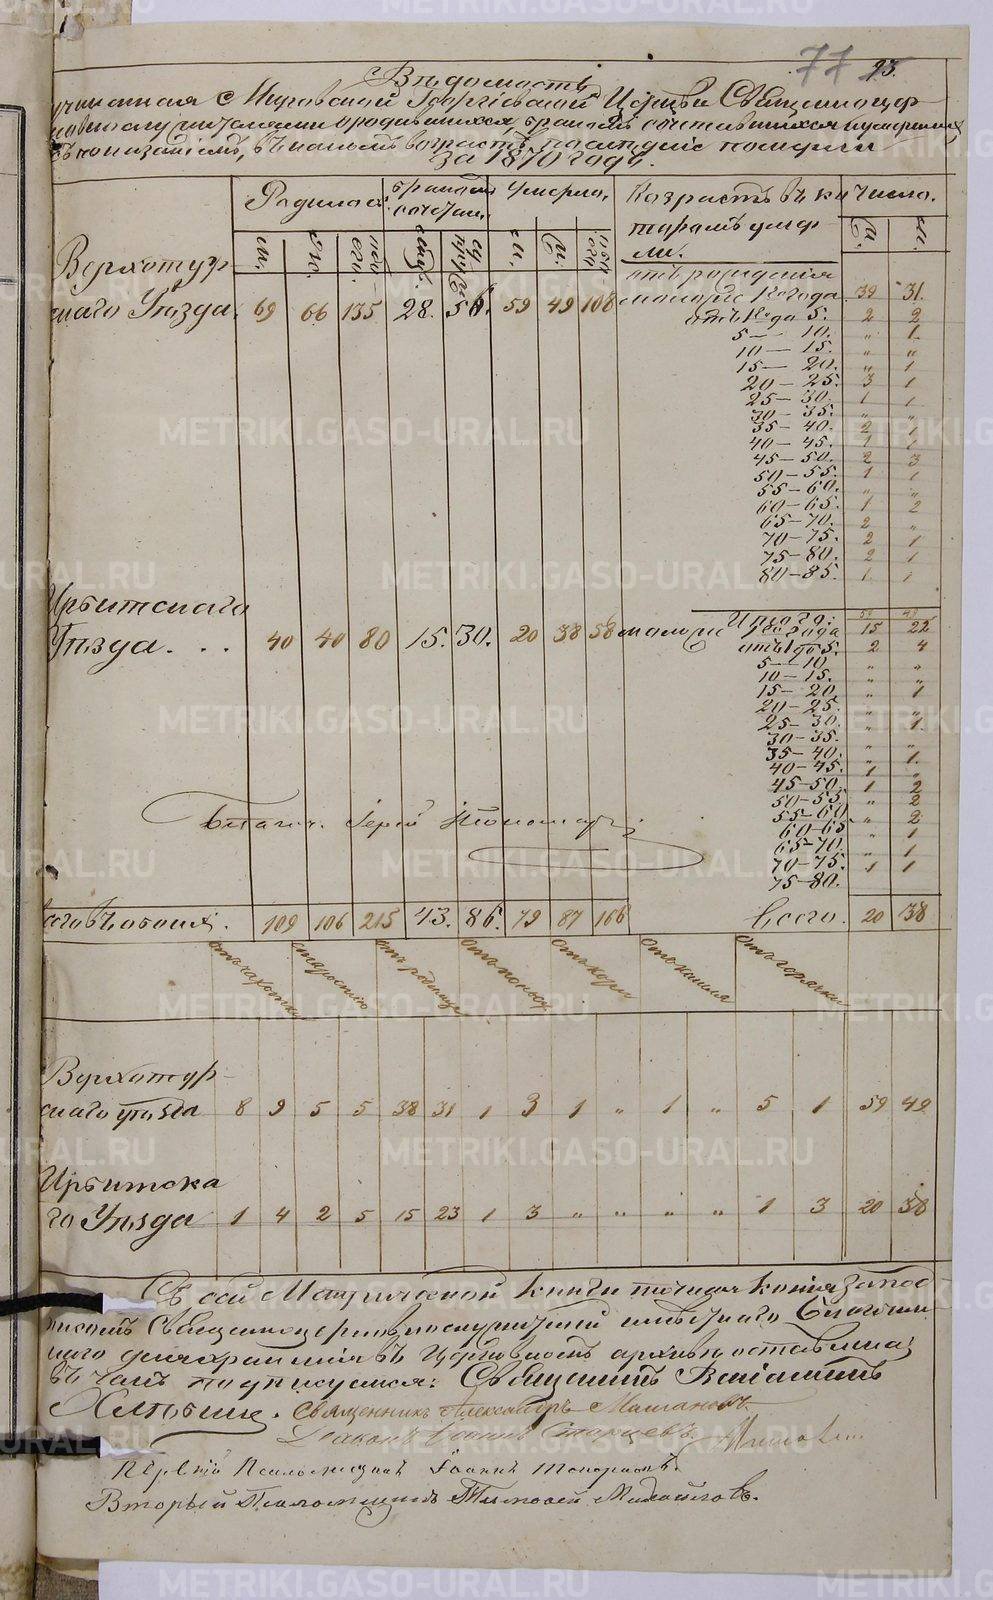 77 93.
Ведомость
учиненная с Шуровской Георгіевской Церкви Священноцер-
ковнослужителями о родившихся бракомъ сочетавшихся и умершихъ
съ показаніемъ, въ какомъ возрастѣ послѣдніе померли
за 1870 годъ.
Родилось бракомъ сочетан. Умерло, Возрастъ въ ко- Число.
торомъ умер-
ли.
м. ж. обоего м. ж. обоего м. ж.
Верхотур- отъ рожденія
скаго Уѣзда. 69 66 135 28. 56. 59 49 108 моложе 1го года. 39 31.
отъ 1 года 5. 2 2
5— 10. „ 1.
10— 15. „ „
15— 20. „ 1
20— 25. 3 1
25— 30. 1 1
30— 35. „ „
35— 40. 2 1
40— 45. 1 1
45—50. 2 3
50—55. 1 1
55—60. „ „
60—65. 1 2
65—70. 2 „
70—75. 2 1
75—80. 2 1
80—85. 1 1
Итого: 59 49
Ирбитскаго
Уѣзда. . . 40 40 80 15. 30. 20 38 58 моложе 1го года 15 22
отъ 1 до 5. 2 4
5— 10 „ „
10— 15. „ „
15— 20. „ 1
20— 25. „ „
25— 30. „ 1.
30—35. „ „
35—40. „ 1.
40—45. 1 „
45—50. 1 2
50—55. „ 2
55—60. „ 2
60—65 „ 1
65—70. „ 1
70—75. 1 1
75—80.
Благоч. Іерей
Всего въ обоихъ. 109 106 215 43. 86. 79 87 166 Всего. 20 38
отъ чахотки старостію отъ родимца отъ поноса отъ кори отъ кашля отъ горячки
Верхотур-
скаго уѣзда 8 9 5 5 38 31 1 3 1 „ 1 „ 5 1 59 49
Ирбитска
го Уѣзда 1 4 2 5 15 23 1 3 „ „ „ „ 1 3 20 38
Съ сей Метрической книги точная копія за под
писомъ Священноцерковнослужителей
для храненія въ Церковномъ архивѣ оставлена;
въ чемъ подписуемся: Священникъ Веніаминъ
Священникъ Александръ
Діаконъ Іоаннъ Старцевъ
Первый Псаломщикъ Іоаннъ Топорковъ.
Вторый Псаломщикъ Тимофей Михайловъ.
METRIKI.GASO-URAL.RU